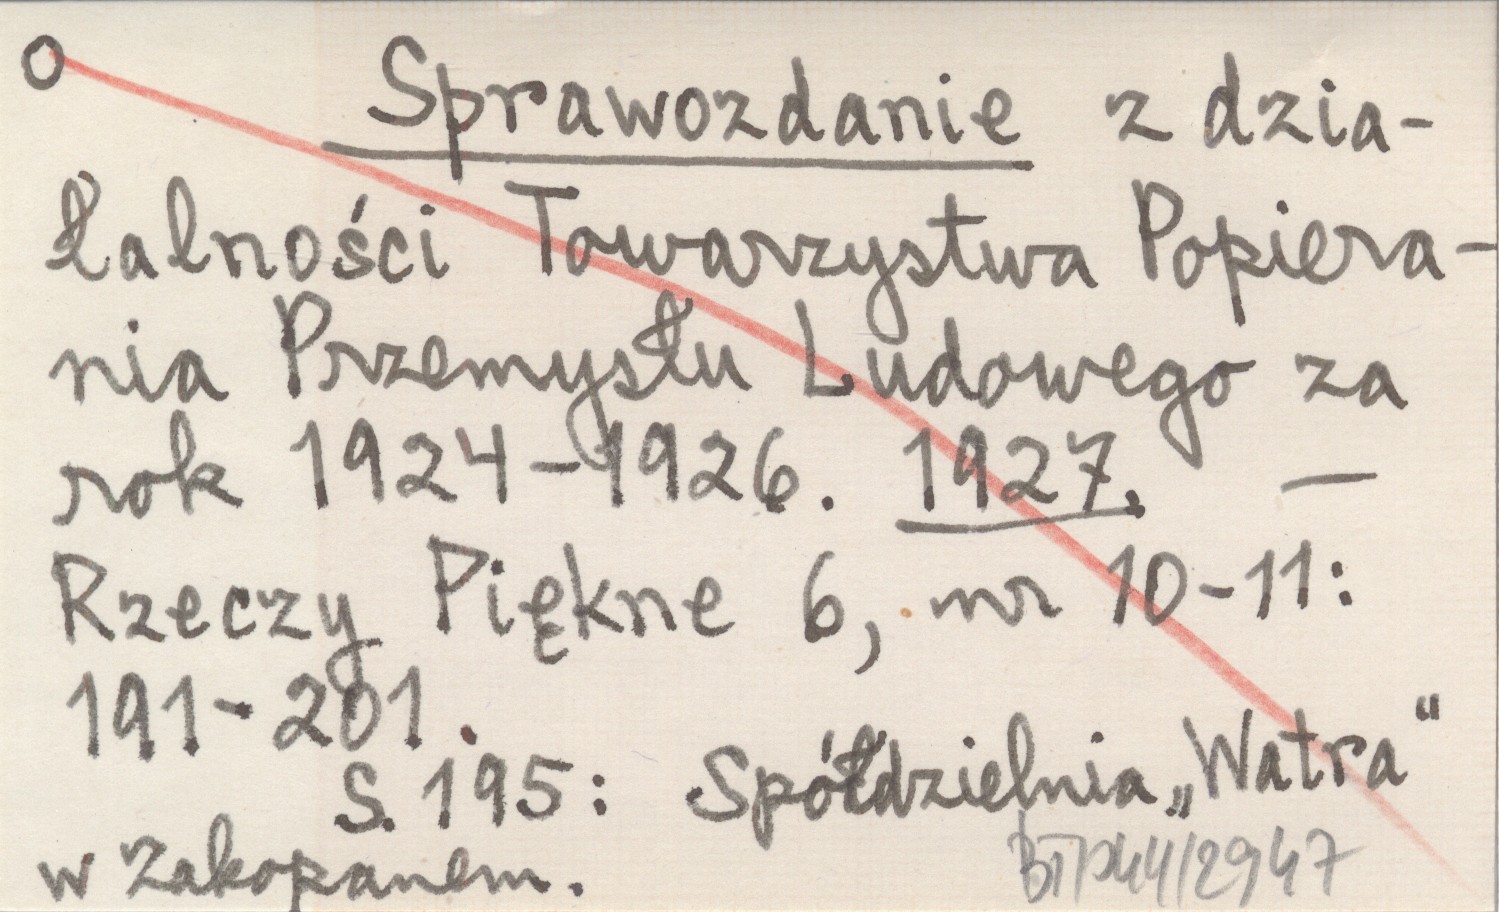 o Sprawozdanie z dzia-
łalności Towarzystwa Popiera-
nia Przemysłu Ludowego za
rok 1924-1926. 1927. —
Rzeczy Piękne 6, nr 10-11:
191-201.
S. 195: Spółdzielnia „Watra“
w Zakopanem.